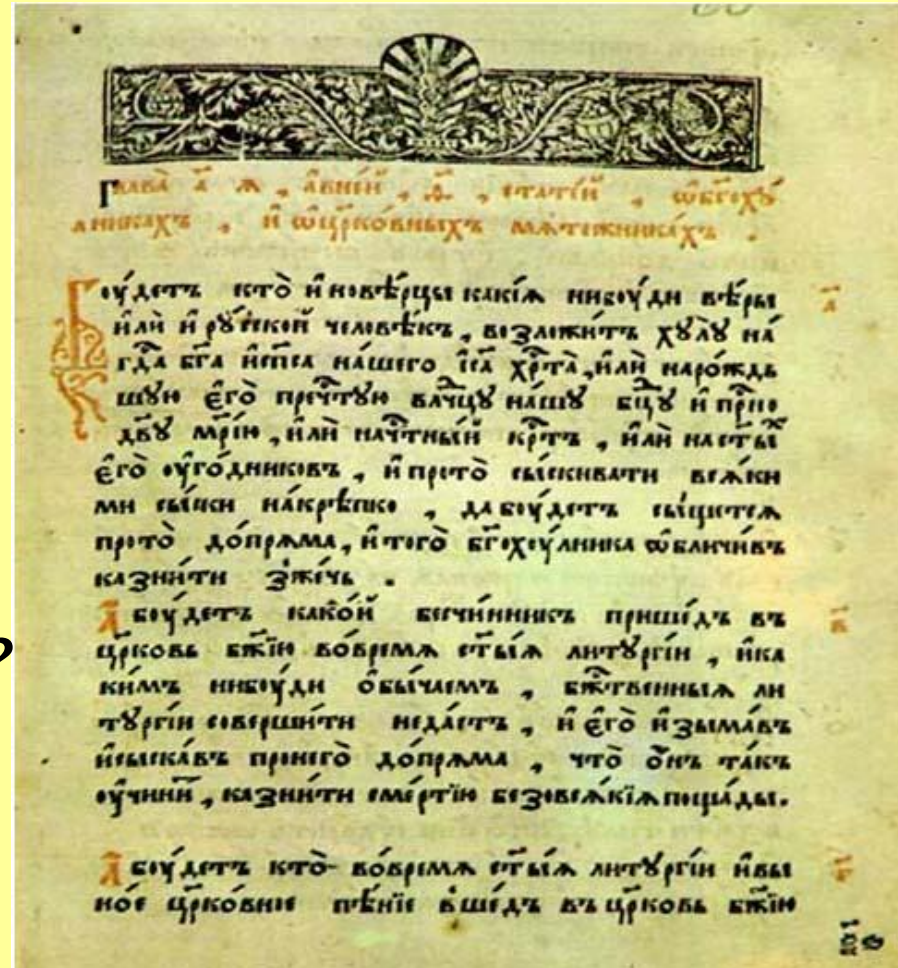 Глава̀ а҃ я , а҆ в не́й , ѳ҃ , статі́й , ѡ҆ бг҃охꙋ́
лникахъ , и҆ ѡ҆ цр҃ко́вныхъ мѧте́жника́хъ .
Боу́детъ кто̀ и҆новѣ́рцы какі́ѧ нибоу́ди вѣ́ры
и҆лѝ и҆ рꙋ́ской человѣ́къ , возложи́тъ хꙋлꙋ̀ на́
гдⷭ҇а бг҃а и҆ сп҃са на́шего і҆са҃ хрⷭ҇та̀ , и҆лѝ наро́ждь
шꙋю є҆го̀ пречⷭ҇тꙋю влⷣчцꙋ на́шꙋ бцⷣꙋ и҆ прⷭ҇но
дв҃ꙋ мр҃і́ю , и҆лѝ на чⷭ҇тны́й крⷭ҇тъ , и҆лѝ на ст҃ы́хъ
є҆го̀ оу҆го́дниковъ , и҆ про то̀ сы́скивати всѧ́ки
ми сы́ски на́крѣпко , да боу́детъ сы́щетсѧ
про то̀ до́прѧма , и҆ того̀ бг҃охоу́лника ѡ҆бличи́въ
казни́ти зже́чь .
А҆ боу́детъ како́й безчи́нникъ прише́дъ въ
цр҃ковь бж҃їю во́времѧ ст҃ы́ѧ литꙋргі́и , и҆ ка
ки́мъ нибоу́ди ѻ҆бы́чаемъ , бжⷭ҇твенныѧ ли
тꙋргі́и соверши́ти не да́стъ , и҆ є҆го̀ и҆зыма́въ
и҆ сыска́въ про него̀ до́прѧма , что̀ ѻ҆́нъ та́къ
оу҆чини́тъ , казни́ти сме́ртїю безо всѧ́кїѧ поща́ды .
А҆ боу́детъ кто̀ во́времѧ ст҃ы́ѧ литꙋргі́и и҆ в ы
но́е цр҃ко́вное пѣ́нїе вше́дъ въ цр҃ковь бж҃їю